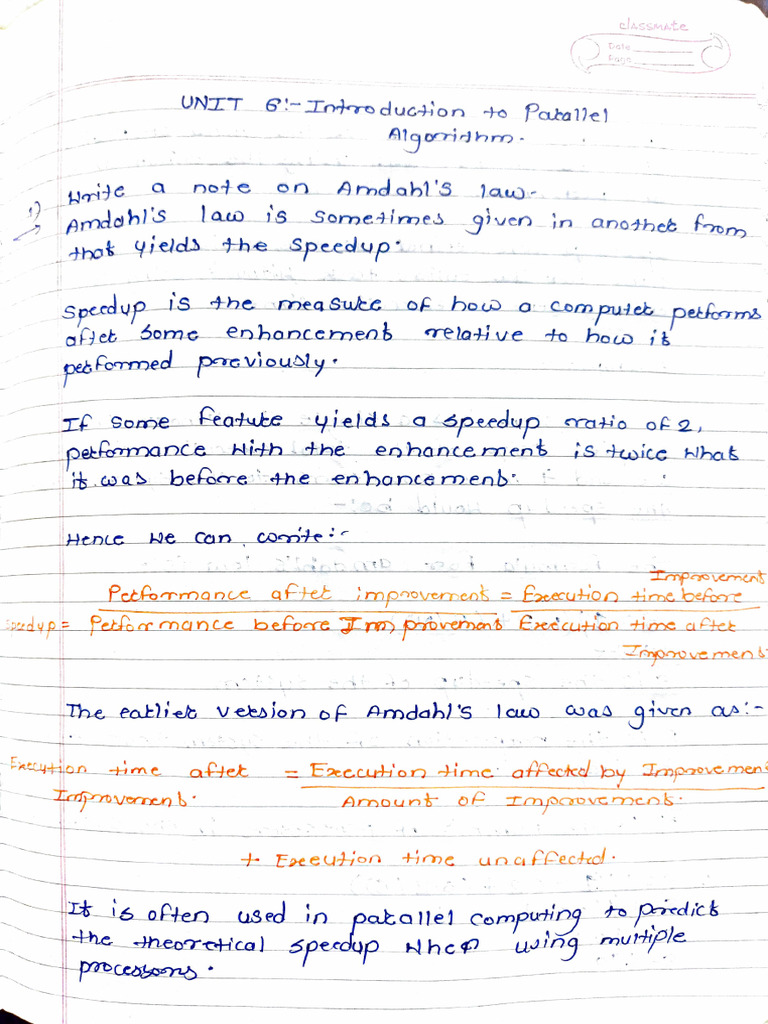 classmate
Date
Page
UNIT 6:- Introduction to Parallel
Algorithm.
1) Write a note on Amdahl's law.
Amdahl's law is sometimes given in another from
that yields the speedup.
Speedup is the measure of how a computer performs
after some enhancement relative to how it
performed previously.
If some feature yields a speedup ratio of 2,
performance with the enhancement is twice what
it was before the enhancement.
Hence we can write:-
Improvement
Performance after improvement = Execution time before
Speedup = Performance before Improvement Execution time after
Improvement
The earlier version of Amdahl's law was given as:-
Execution time after = Execution time affected by Improvement
Improvement. Amount of Improvement.
+ Execution time unaffected.
It is often used in parallel computing to predict
the theoretical speedup when using multiple
processors.